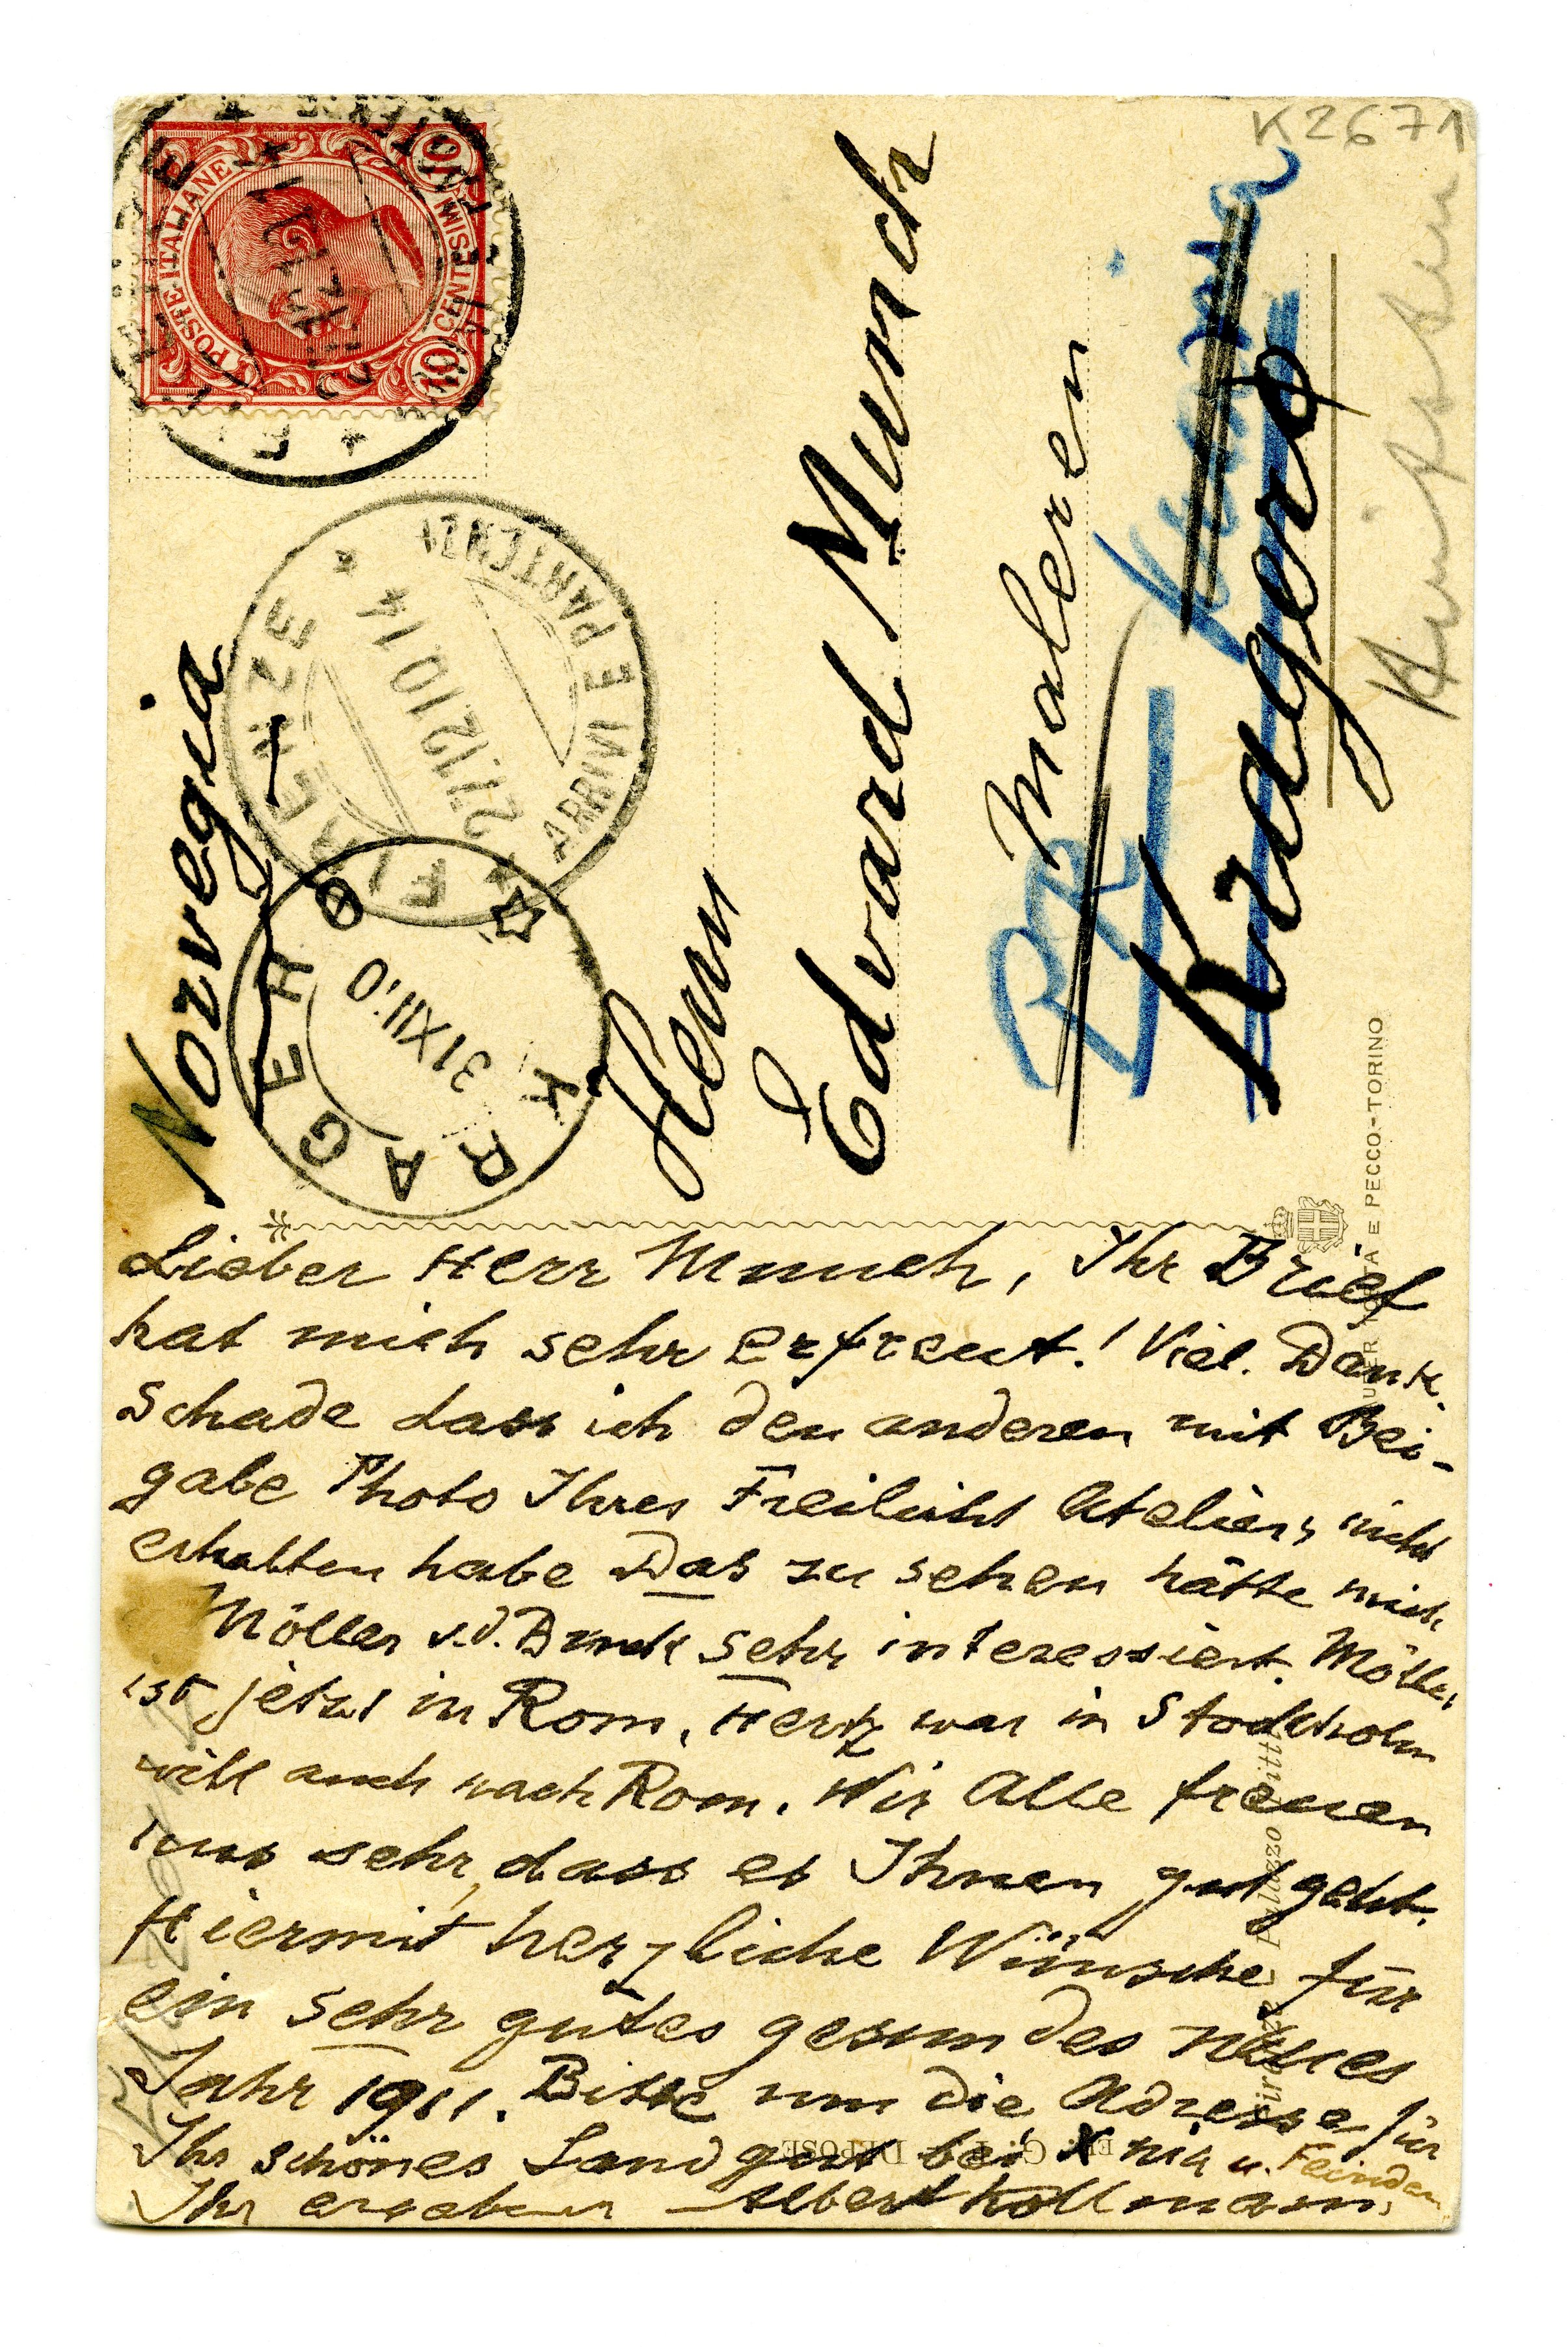 K2671
POSTE ITALIANE
CENTESIMI
10
10
FIRENZE
ARRIVI E PARTENZE
27.12.10 14
KRAGERØ
31 XII 10
Norvegia
Herrn
Edvard Munch
Maleren
Kragerø
Lieber Herr Munch, Ihr Brief
hat mich sehr erfreut! Viel. Dank.
Schade dass ich den anderen mit Bei-
gabe Photo Ihres Freilicht Ateliers nicht
erhalten habe Das zu sehen hätte mich
Möller v.d. Bruck sehr interessiert. Möller
ist jetzt in Rom, Hertz war in Stockholm
will auch nach Rom. Wir Alle freuen
uns sehr, dass es Ihnen gut geht.
Hiermit herzliche Wünsche für
ein sehr gutes gesundes neues
Jahr 1911. Bitte um die Adresse für
Ihr schönes Landgut bei X nia u. Feinden
Ihr ergebener Albert Kollmann.
E PECCO-TORINO
Palazzo Pitti
DEPOSE